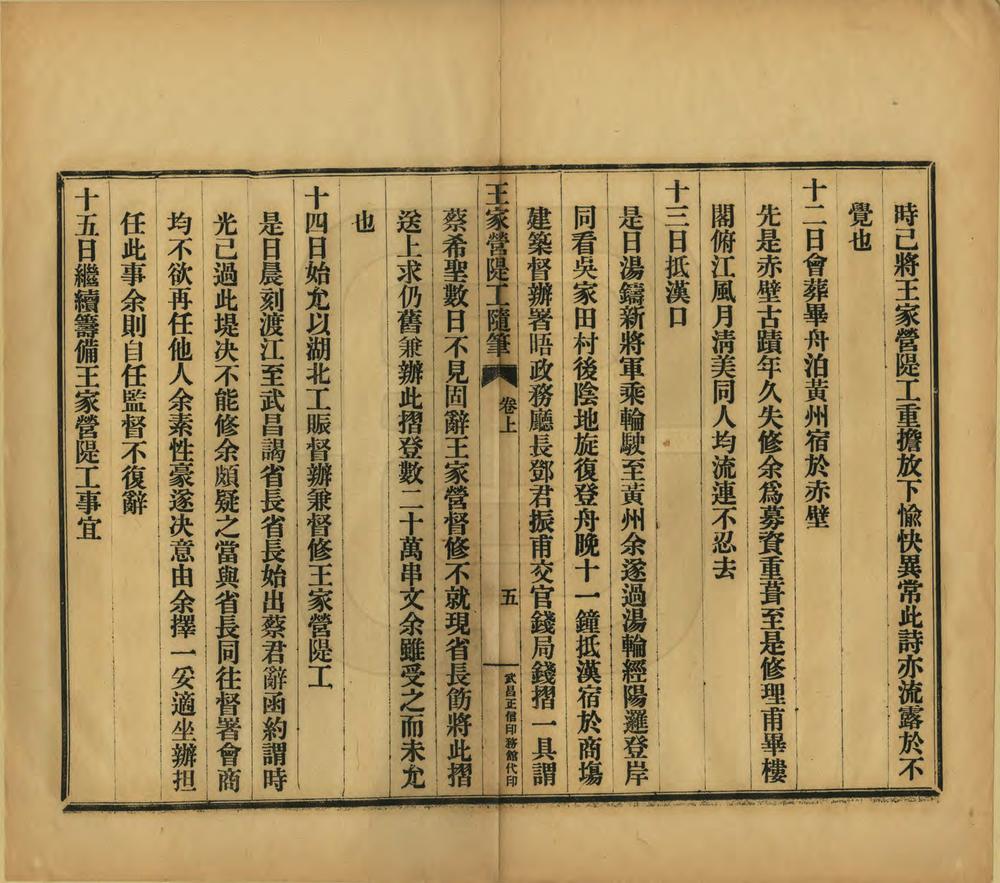 時已將王家營隄工重擔放下愉快異常此詩亦流露於不
覺也
十二日會葬畢舟泊黃州宿於赤壁
先是赤壁古蹟年久失修余爲募資重葺至是修理甫畢樓
閣俯江風月清美同人均流連不忍去
十三日抵漢口
是日湯鑄新將軍乘輪駛至黃州余遂過湯輪經陽邏登岸
同看吳家田村後陰地旋復登舟晚十一鐘抵漢宿於商塲
建築督辦署晤政務廳長鄧君振甫交官錢局錢摺一具謂
王家營隄工隨筆 卷上 五 武昌正信印務館代印
蔡希聖數日不見固辭王家營督修不就現省長飭將此摺
送上求仍舊兼辦此摺登數二十萬串文余雖受之而未允
也
十四日始允以湖北工賑督辦兼督修王家營隄工
是日晨刻渡江至武昌謁省長省長始出蔡君辭函約謂時
光已過此堤决不能修余頗疑之當與省長同往督署會商
均不欲再任他人余素性豪遂决意由余擇一妥適坐辦担
任此事余則自任監督不復辭
十五日繼續籌備王家營隄工事宜